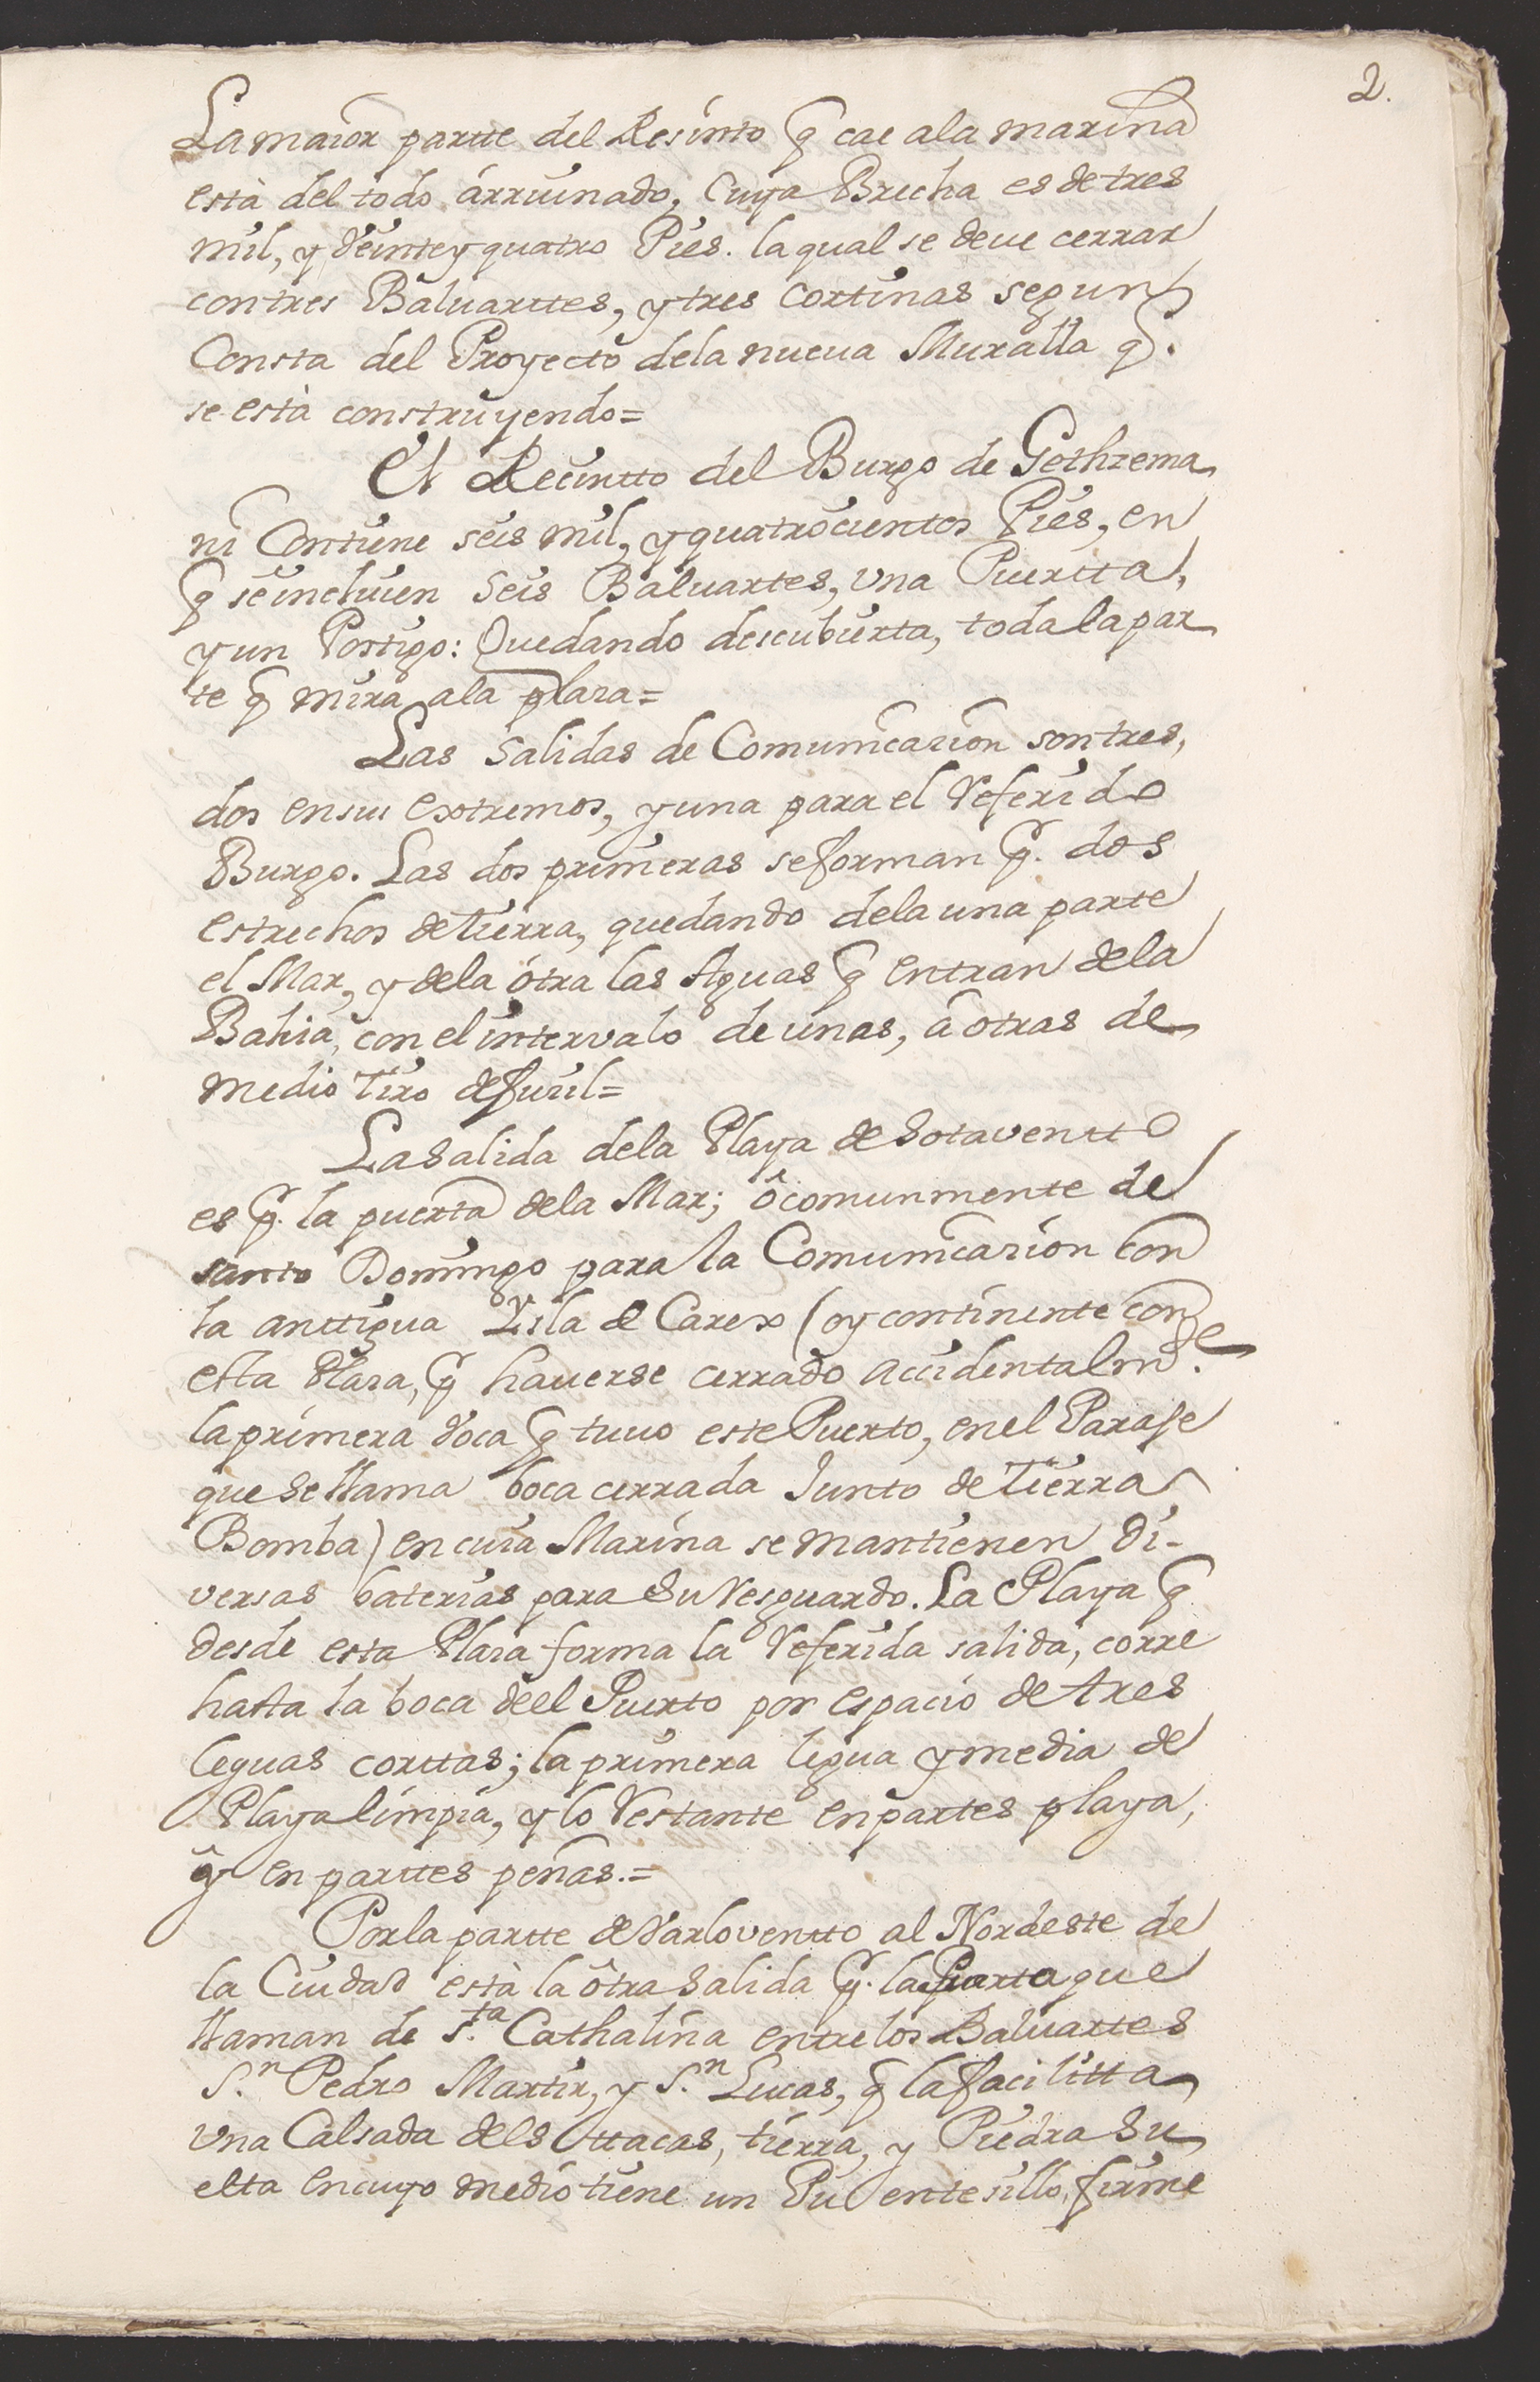 2.
La maior partte del Resinto q̃ cae ala marina
està del todo árruinado, Cuya Brecha es de tres
mil, y Veinte y quatro Pies. la qual se deve cerrar
con tres Baluarttes, y tres Cortinas segun
Consta del Proyecto dela nueva Muralla q̃.
se està construyendo=
El Recintto del Burgo de Gethzema
ni Contiene seis mil, y quatrocientos Pies, en
q̃ se incluien Seis Baluartes, Una Puertta,
y un Portigo: Quedando descubierta, toda la par
te q̃ mira ala plaza=
Las Salidas de Comunicazion son tres,
dos en sus extremos, y una para el Referido
Burgo. Las dos primeras se forman p̃. dos
estrechos de tierra, quedando dela una parte
el Mar, y dela ótra las Aguas q̃ entran dela
Bahia, con el intervalo de unas, â otras de
medio Tiro de fuzil=
La Salida dela Playa de Sotaventto
es p̃. la puerta dela Mar; ô comunmente de
santo Domingo para la Comunicazion con
la anttigua Ysla de Carex (oy continente con
esta Plaza, p̃ haverse cerrado accidentalm.te
la primera Voca q̃ tuvo este Puerto, en el Paraje
que Se llama boca cerrada Junto de Tierra
Bomba) en cuia Marina se mantienen di-
versas baterias para Su Resguardo. La Playa q̃
desde esta Plaza forma la Referida salida, corre
hasta la boca deel Puerto por espacio de tres
leguas corttas; la primera legua y media de
Playa limpia, y lo Restante en partes playa,
y en parttes peñas.=
Por la partte de Varloventto al Nordeste de
la Ciudad està la ôtra Salida p̃. la Puerta que
llaman de S.ta Cathalina entre los Baluartes
S.n Pedro Martir, y S.n Lucas, q̃ la facilitta
Una Calsada de esttacas, tierra, y Piedra Su
elta en cuyo medio tiene un Puentesillo, firme